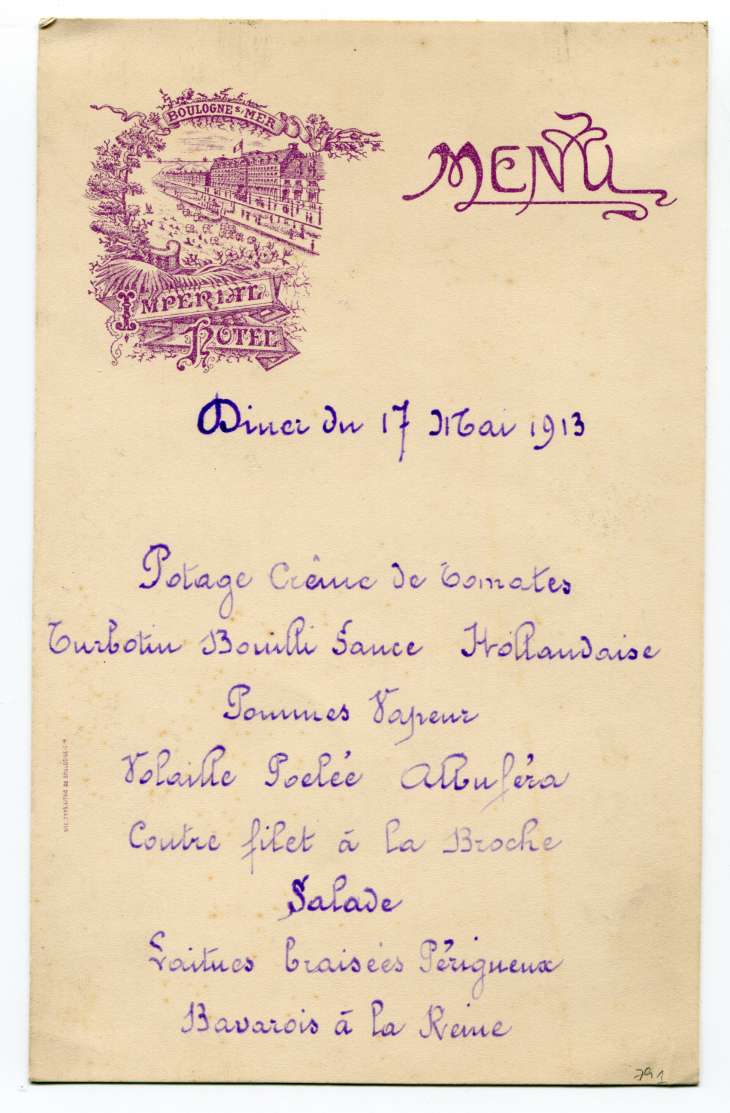 BOULOGNE S/ MER
IMPERIAL
HOTEL
MENU
Diner du 17 Mai 1913
Potage Crême de Tomates
Turbotin Bouilli Sauce Hollandaise
Pommes Vapeur
Volaille Poelée Albuféra
Contre filet à la Broche
Salade
Laitues braisées Périgueux
Bavarois à la Reine
791